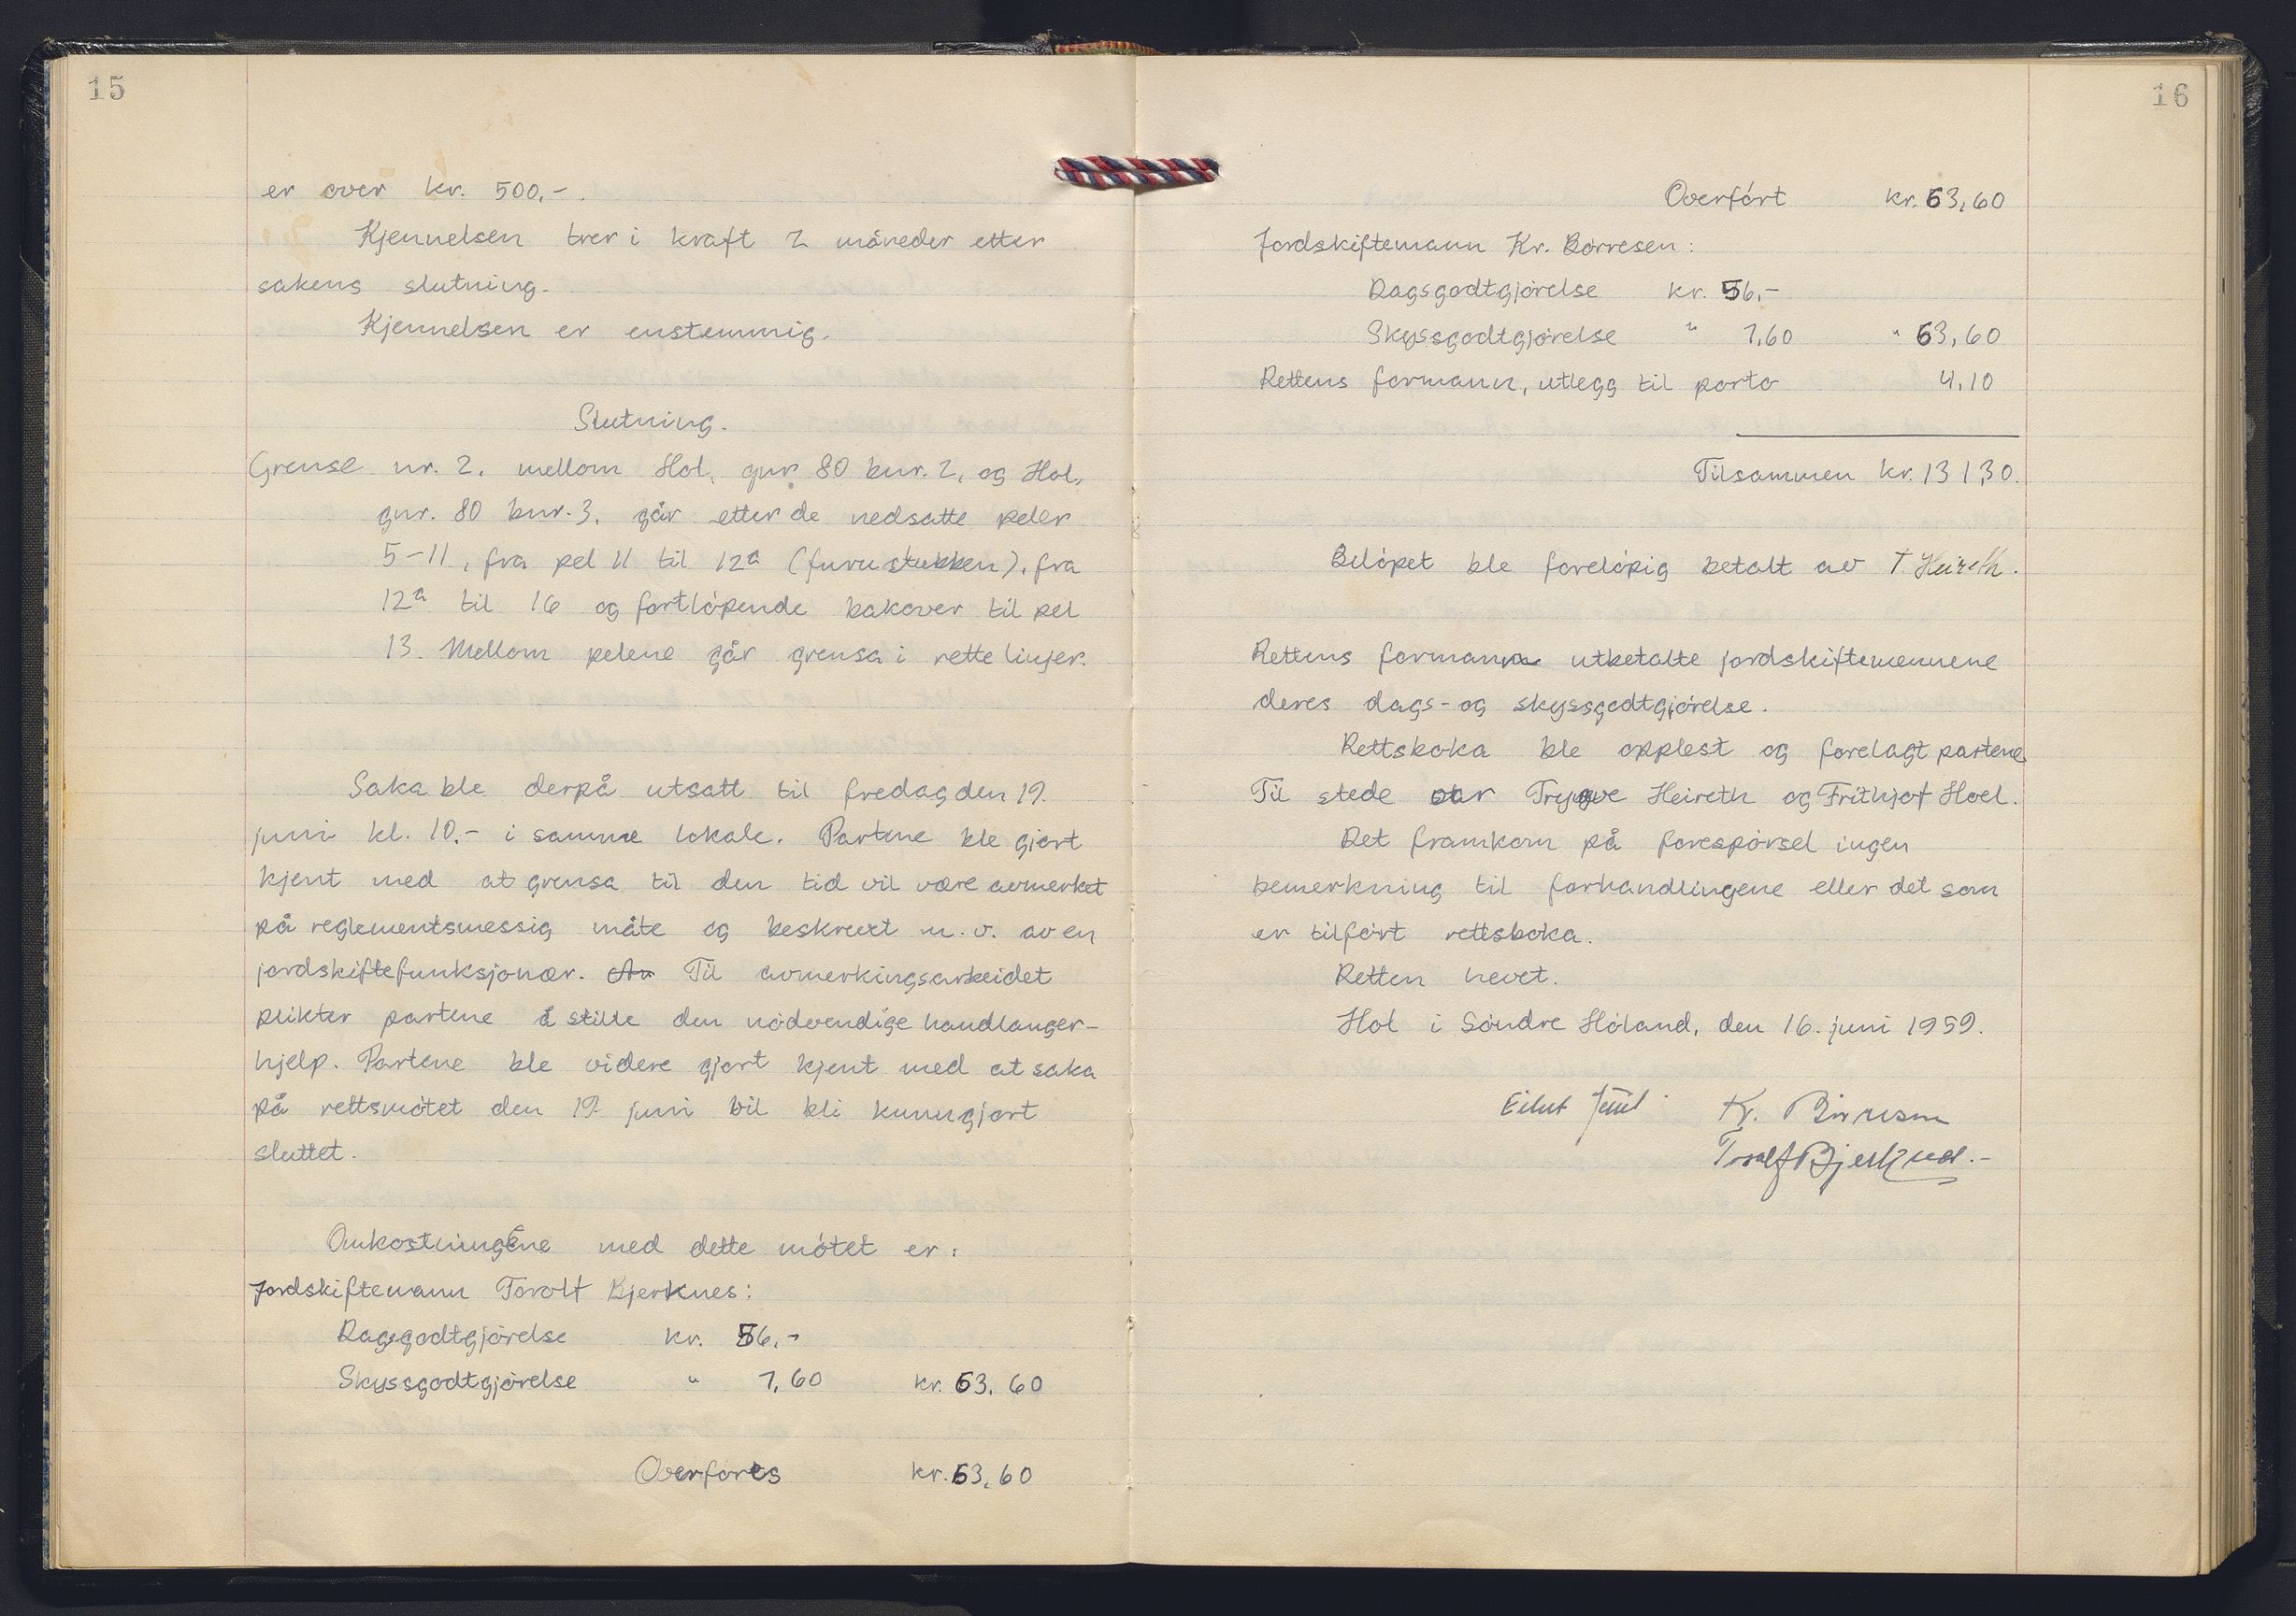 15
er over kr. 500,-.
Kjennelsen trer i kraft 2 måneder etter
sakens slutning.
Kjennelsen er enstemmig.
Slutning.
Grense nr. 2, mellom Hol, gnr. 80 bnr. 2, og Hol,
gnr. 80 bnr. 3, går etter de nedsatte peler
5-11, fra pel 11 til 12a (furustubben), fra
12a til 16 og fortløpende bakover til pel
13. Mellom pelene går grensa i rette linjer.
Saka ble derpå utsatt til fredag den 19.
juni kl. 10.- i samme lokale. Partene ble gjort
kjent med at grensa til den tid vil være avmerket
på reglementsmessig måte og beskrevet m.v. av en
jordskiftefunksjonær. Til avmerkingsarbeidet
plikter partene å stille den nødvendige handlanger-
hjelp. Partene ble videre gjort kjent med at saka
på rettsmøtet den 19. juni vil bli kunngjort
sluttet.
Omkostningene med dette møtet er:
Jordskiftemann Torolf Bjerknes:
Dagsgodtgjørelse kr. 56,-
Skyssgodtgjørelse " 7,60 kr. 63,60
Overføres kr. 63,60
16
Overført kr. 63,60
Jordskiftemann Kr. Børresen:
Dagsgodtgjørelse kr. 56,-
Skyssgodtgjørelse " 7,60 " 63,60
Rettens formann, utlegg til porto 4,10
Tilsammen kr. 131,30.
Beløpet ble foreløpig betalt av T. Heireth.
Rettens formann utbetalte jordskiftemennene
deres dags- og skyssgodtgjørelse.
Rettsboka ble opplest og forelagt partene
Til stede var Trygve Heireth og Frithjof Hoel.
Det framkom på forespørsel ingen
bemerkning til forhandlingene eller det som
er tilført rettsboka.
Retten hevet.
Hol i Søndre Høland, den 16. juni 1959.
Kr. Børresen